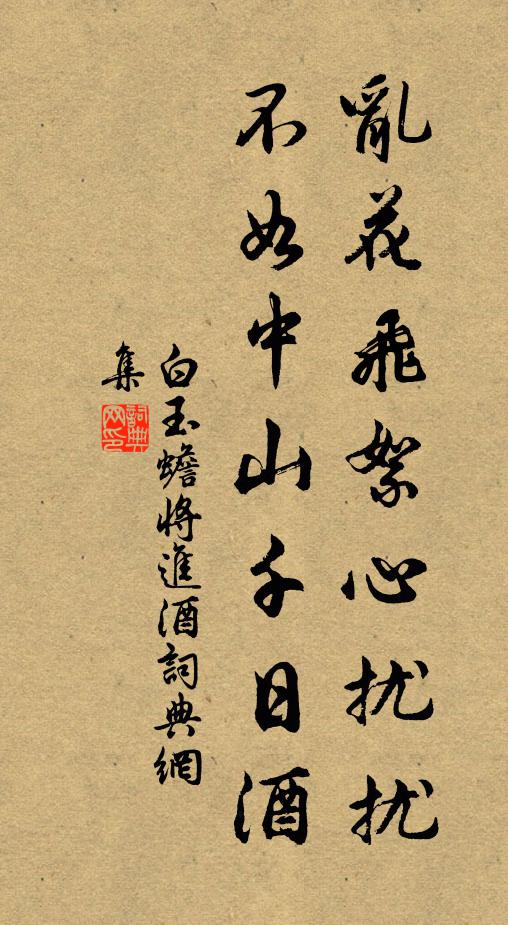 亂花飛絮心扰扰
不如中山千日酒
白玉蟾將進酒詞典網
集
詞典網印